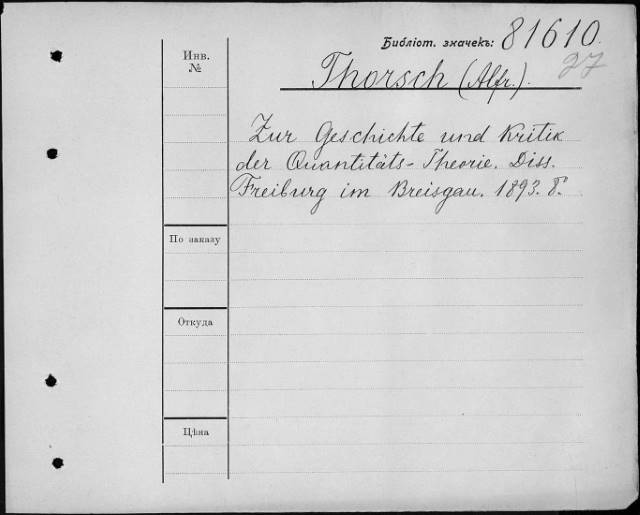 Библіот. значекъ: 81610.
27
Инв.
№
Thorsch (Alfr.).
Zur Geschichte und Kritik
der Quantitäts-Theorie. Diss.
Freiburg im Breisgau. 1893. 8°.
По заказу
Откуда
Цѣна